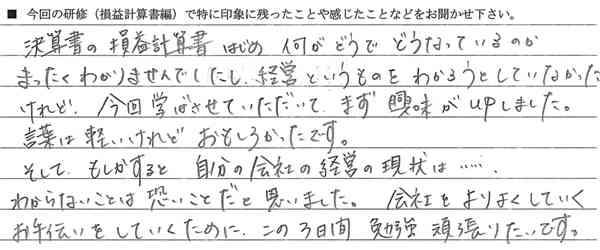 ■ 今回の研修（損益計算書編）で特に印象に残ったことや感じたことなどをお聞かせ下さい。
決算書の損益計算書はじめ 何がどうで どうなっているのか
まったくわかりませんでしたし、経営というものを わかろうとしていなかった
けれど、今回 学ばさせていただいて、まず 興味がupしました。
言葉は軽いけれど おもしろかったです。
そして、もしかすると 自分の会社の経営の現状は……、
わからないことは 恐いことだと思いました。 会社をよりよくしていく
お手伝いをしていくために、この3日間 勉強 頑張りたいです。